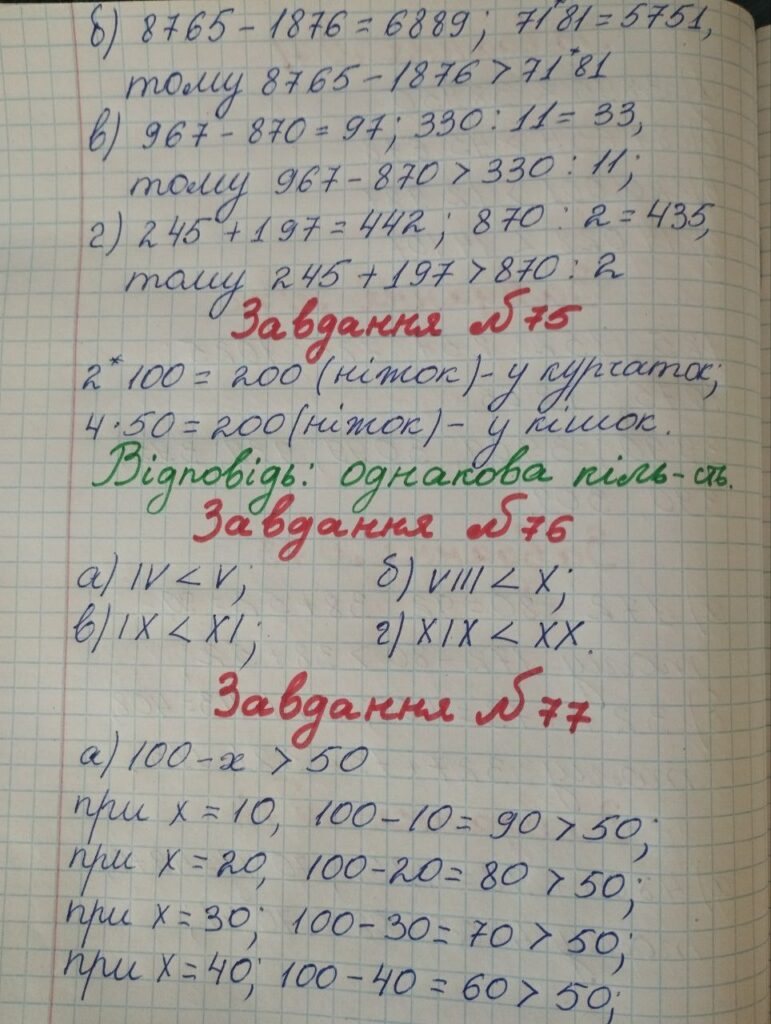 б) 8765 - 1876 = 6889; 71*81 = 5751,
тому 8765 - 1876 > 71*81
в) 967 - 870 = 97; 330 : 11 = 33,
тому 967 - 870 > 330 : 11;
г) 245 + 197 = 442; 870 : 2 = 435,
тому 245 + 197 > 870 : 2
Завдання №75
2*100 = 200 (ніжок) - у курчаток;
4·50 = 200 (ніжок) - у кішок.
Відповідь: однакова кіль-сть.
Завдання №76
а) IV < V; б) VIII < X;
в) IX < XI; г) XIX < XX.
Завдання №77
а) 100 - x > 50
при x = 10, 100 - 10 = 90 > 50;
при x = 20, 100 - 20 = 80 > 50;
при x = 30; 100 - 30 = 70 > 50;
при x = 40; 100 - 40 = 60 > 50;